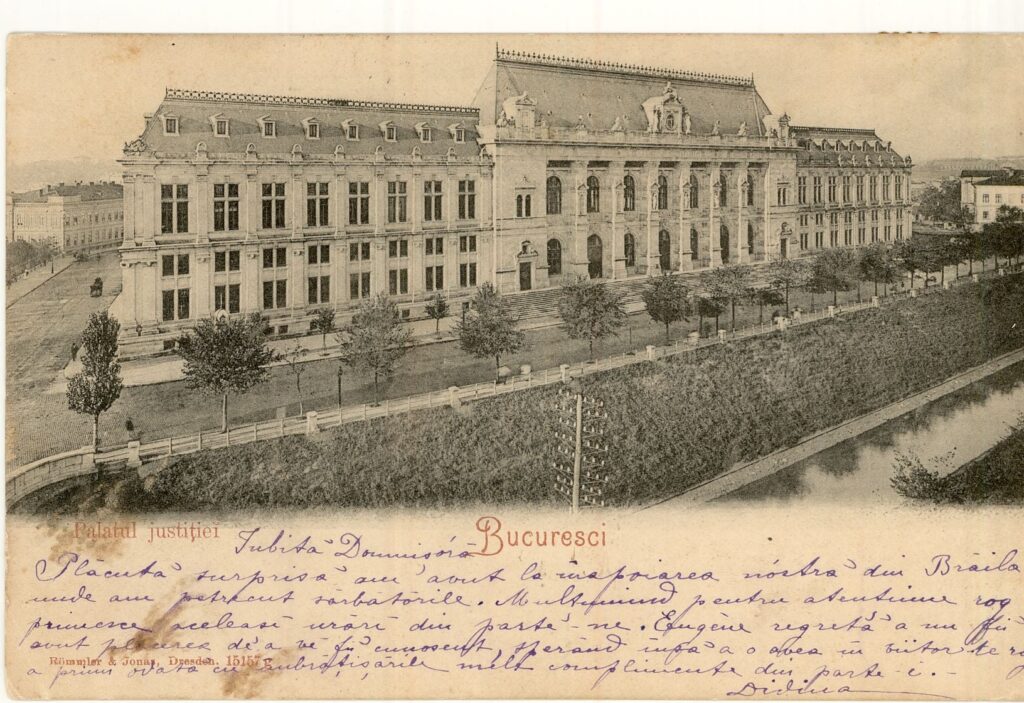 Palatul justiţieĭ
Bucuresci
Iubită Domnișóră
Plăcută surprisă am avut la înapoiarea nóstră din Brăila
unde am petrecut sărbătorile. Mulțumind pentru atențiune rog
primesce aceleași urări din parte-ne. Eugene regretă a nu fi
avut plăcerea d'a vĕ fi cunoscut, sperând însă a o avea în viitor te
a primi odată cu îmbrățișările mele complimente din parte-i.-
Römmler & Jonas, Dresden. 15157 g
Didina